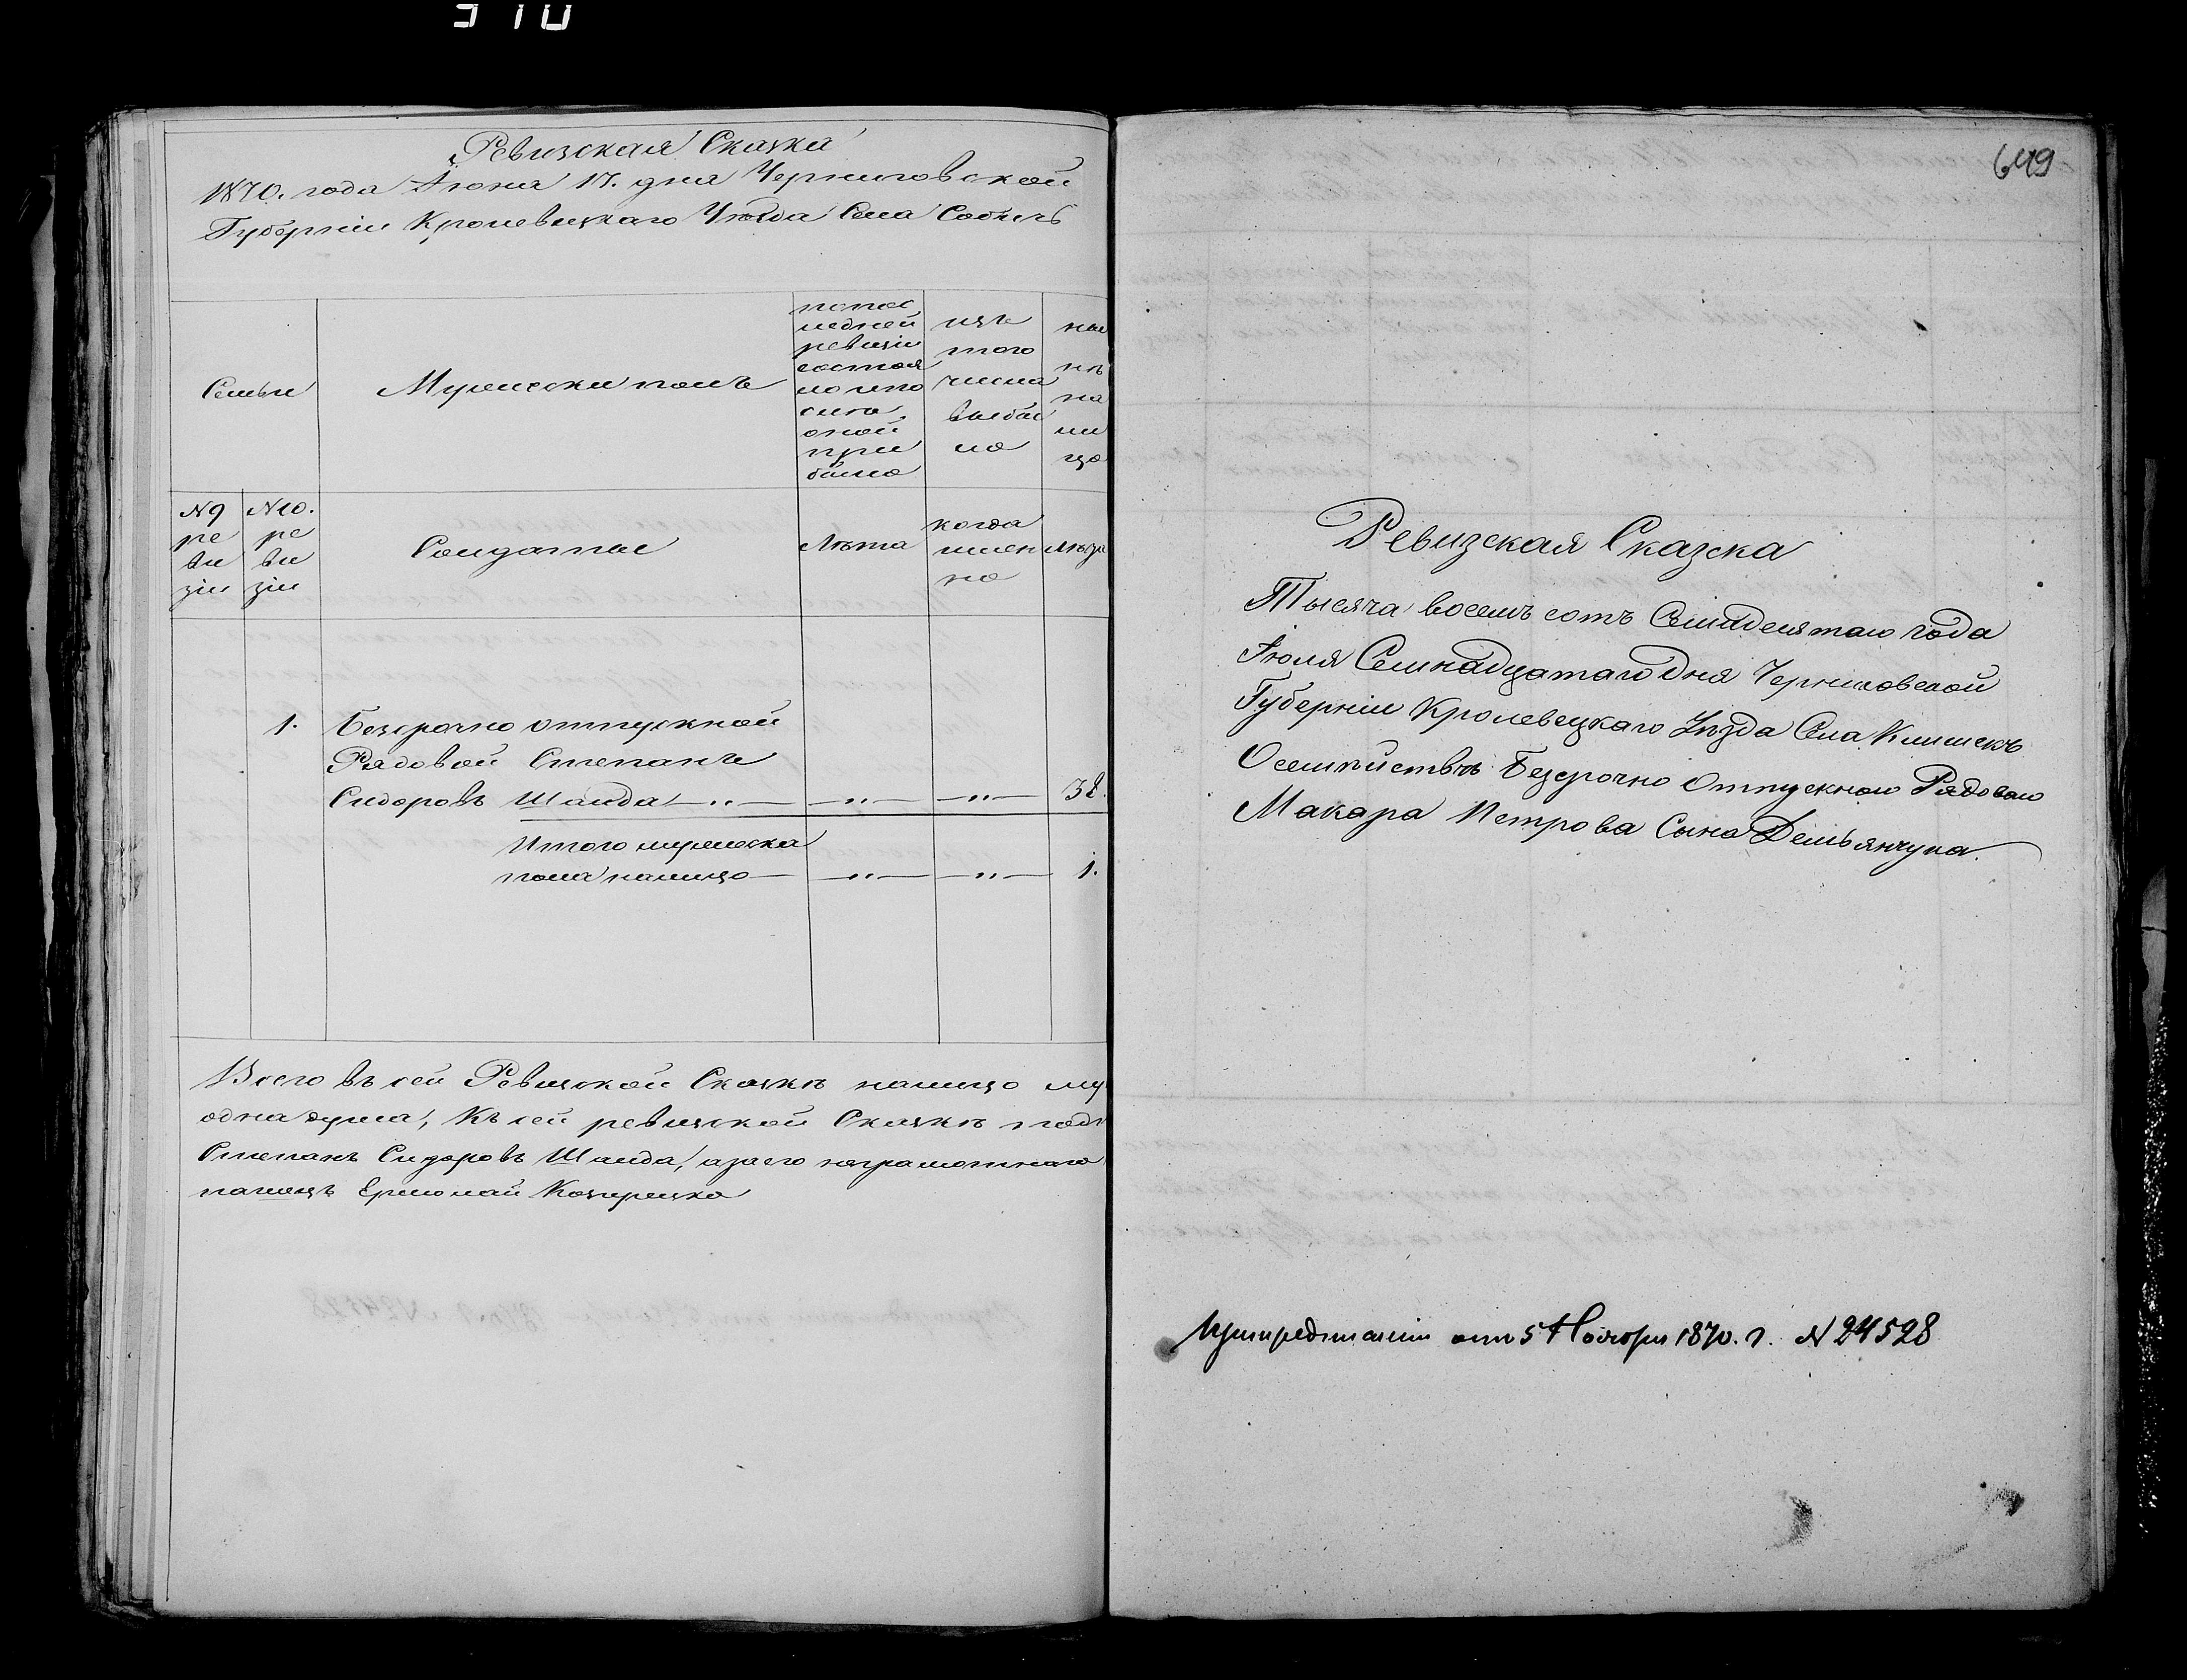 310
Ревизская Сказка
1870. года Июня 17. дня Черниговской
Губерніи Кролевецкаго Уѣзда Села Собичь
Семьи
Мужески полъ
попос
ледней
ревизіи
состоя
ло ипо
слѣ
оной
при
было
изъ
того
числа
выбы
ло
ны
нѣ
на
ли
цо
N9
ре
ви
зіи
N10.
ре
ви
зіи
Солдатые
Лѣта
когда
имен
но
Лѣта
1. Безсрочно отпускной
Рядовой Степанъ
Сидоровъ Шанда — „ — — „ — — „ — 38.
Итого мужеска
пола налицо — — „ — — „ — 1.
Всего въ сей Ревизской Сказкѣ налицо му
одна душа, Къ сей ревизской Сказкѣ подп
Степанъ Сидоровъ Шанда, а за его неграмотнаго
Ермолай
649
Ревизская Сказска
Тысяча восемь сотъ Семидесятаго года
Іюля Семнадцатаго Дня Черниговской
Губерніи Кролевецкаго Уѣзда Села Клишекъ
Осемѣйствѣ Безсрочно Отпускнаго Рядоваго
Макара Петрова Сына Демьянчука.
При предписаніи отъ 5 Ноября 1870. г. N 24528